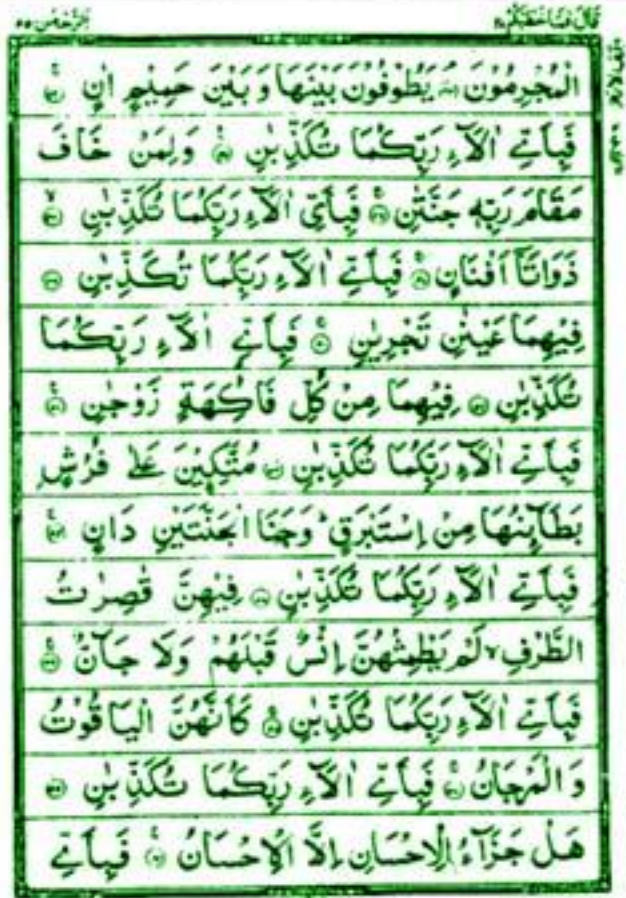 قَالَ فَمَا خَطْبُكُمْ ٢٧
اَلرَّحْمٰن ٥٥
الْمُجْرِمُوْنَ ۘ يَطُوْفُوْنَ بَيْنَهَا وَ بَيْنَ حَمِيْمٍ اٰنٍ ۚ
فَبِاَيِّ اٰلَآءِ رَبِّكُمَا تُكَذِّبٰنِ ۠ وَلِمَنْ خَافَ
مَقَامَ رَبِّهٖ جَنَّتٰنِ ۚ فَبِاَيِّ اٰلَآءِ رَبِّكُمَا تُكَذِّبٰنِ ۙ
ذَوَاتَاۤ اَفْنَانٍ ۚ فَبِاَيِّ اٰلَآءِ رَبِّكُمَا تُكَذِّبٰنِ
فِيْهِمَا عَيْنٰنِ تَجْرِيٰنِ ۚ فَبِاَيِّ اٰلَآءِ رَبِّكُمَا
تُكَذِّبٰنِ فِيْهِمَا مِنْ كُلِّ فَاكِهَةٍ زَوْجٰنِ ۚ
فَبِاَيِّ اٰلَآءِ رَبِّكُمَا تُكَذِّبٰنِ مُتَّكِـِٕيْنَ عَلٰى فُرُشٍۭ
بَطَآىِٕنُهَا مِنْ اِسْتَبْرَقٍ ؕ وَجَنَا الْجَنَّتَيْنِ دَانٍ ۚ
فَبِاَيِّ اٰلَآءِ رَبِّكُمَا تُكَذِّبٰنِ فِيْهِنَّ قٰصِرٰتُ
الطَّرْفِ ۙ لَمْ يَطْمِثْهُنَّ اِنْسٌ قَبْلَهُمْ وَلَا جَآنٌّ ۚ
فَبِاَيِّ اٰلَآءِ رَبِّكُمَا تُكَذِّبٰنِ ۚ كَاَنَّهُنَّ الْيَاقُوْتُ
وَ الْمَرْجَانُ ۚ فَبِاَيِّ اٰلَآءِ رَبِّكُمَا تُكَذِّبٰنِ
هَلْ جَزَآءُ الْاِحْسَانِ اِلَّا الْاِحْسَانُ ۚ فَبِاَيِّ